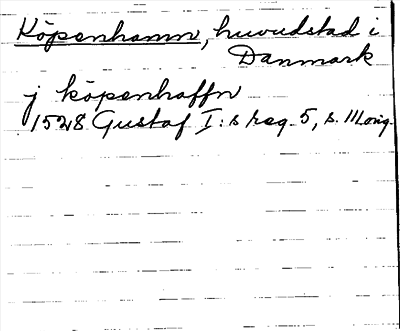 Köpenhamn, huvudstad i
Danmark
j köpenhaffn
1528 Gustaf I:s reg. 5, s. 111 orig.